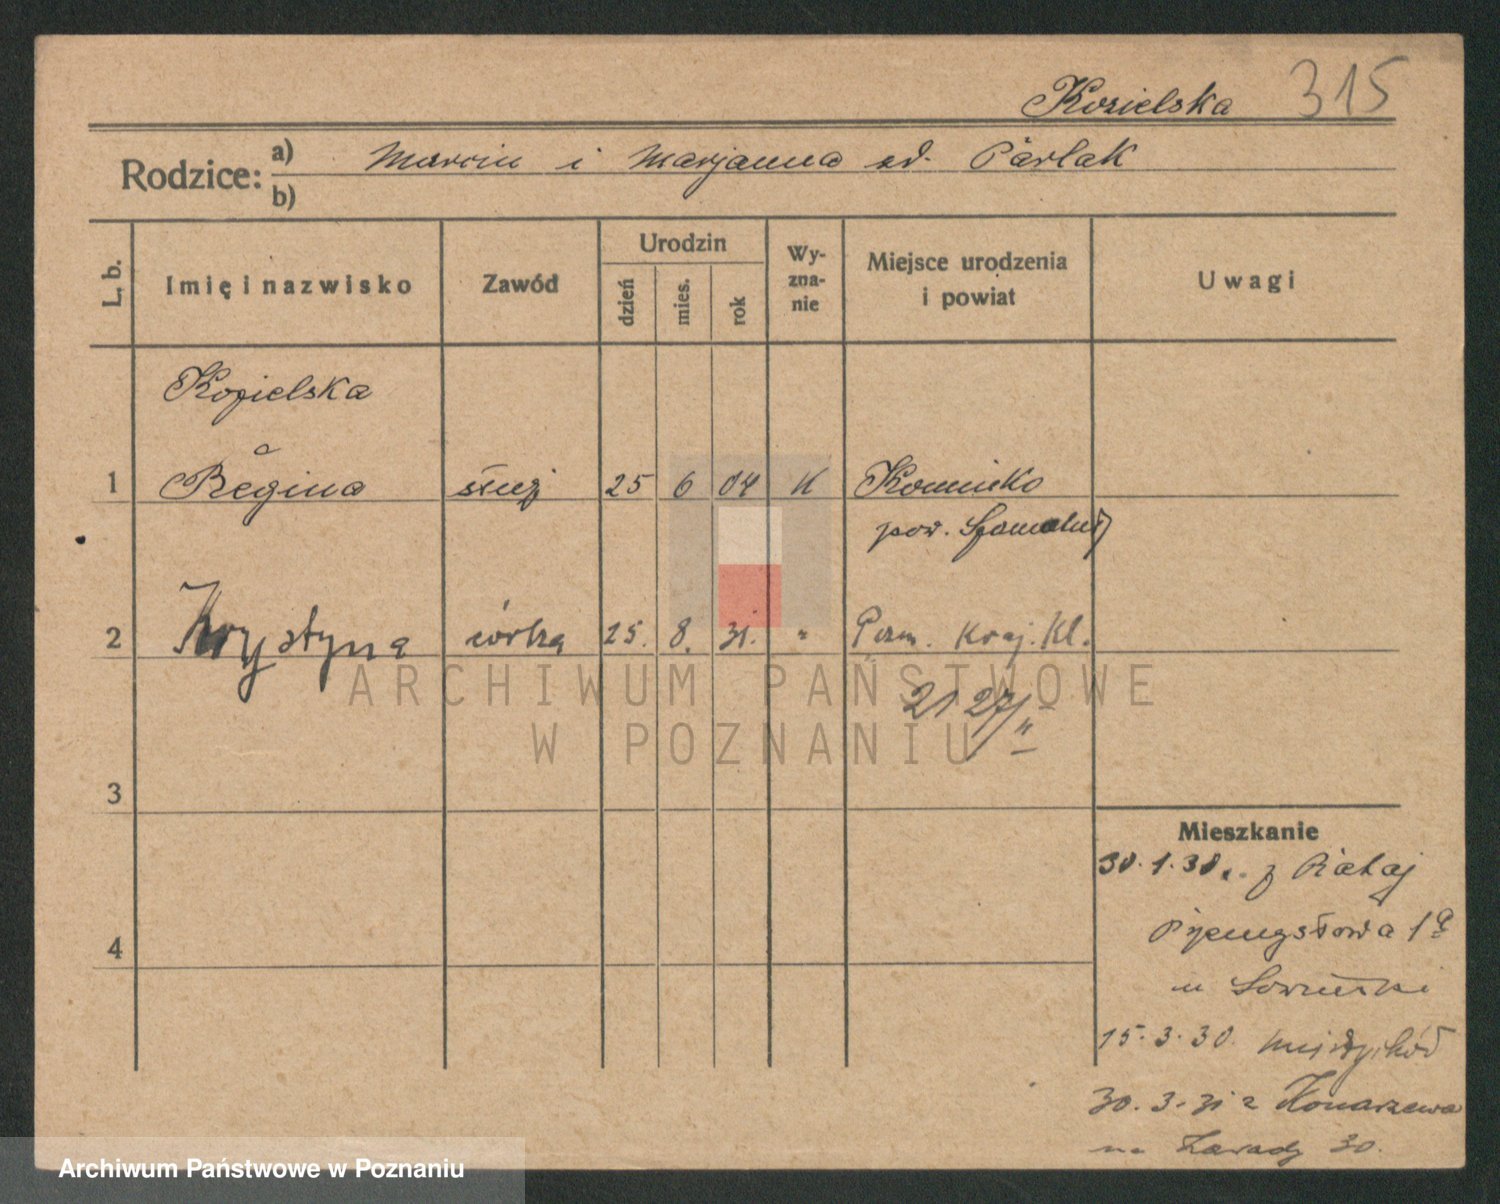 Kozielska 315
Rodzice: a) Marcin i Marjanna zd. Parlak
b)
L. b. Imię i nazwisko Zawód Urodzin dzień mies. rok Wyzna-nie Miejsce urodzenia i powiat Uwagi
Kozielska
a
1 Regina służ 25 6 04 K
pow. Szamotuły
2 Krystyna córka 25. 8. 31. " Pozn. Kraj. Kl.
2127/
3
4
Mieszkanie
30.1.30. z Rataj
Przemysłowa 1a
u
15.3.30.
30.3.31 z Konarzewa
na Zawady 30.
ARCHIWUM PAŃSTWOWE
W POZNANIU
Archiwum Państwowe w Poznaniu